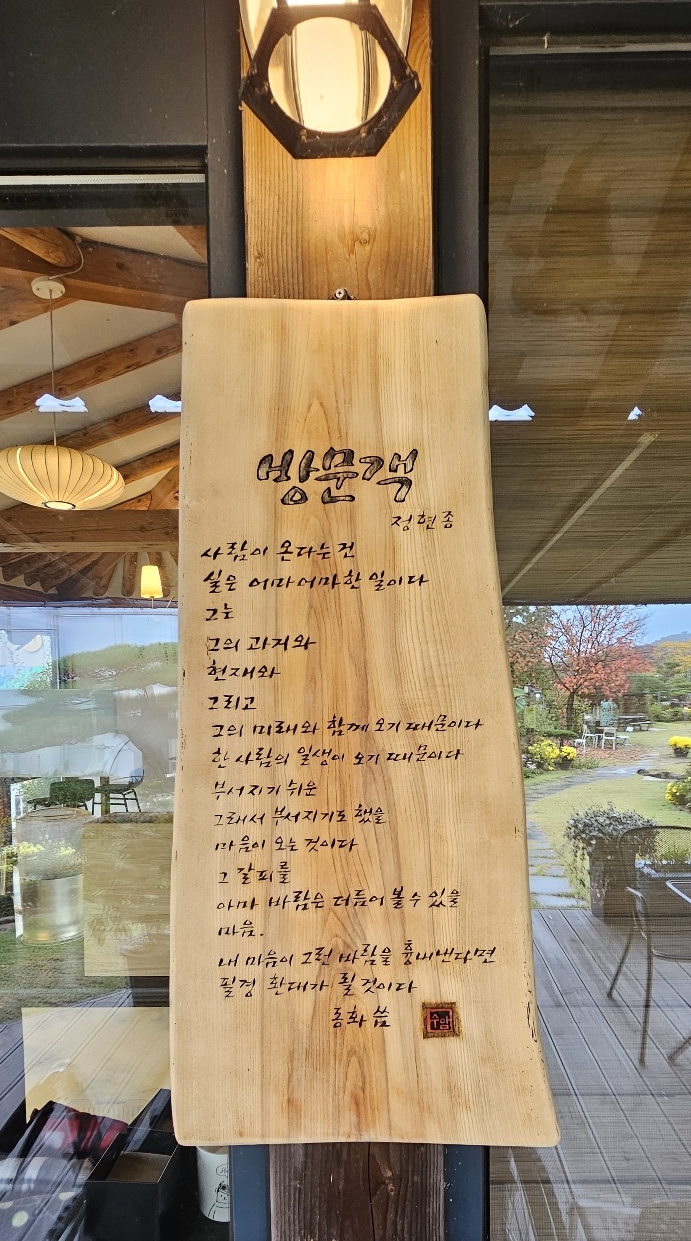 방문객
정현종
사람이 온다는건
실은 어마어마한 일이다
그는
그의 과거와
현재와
그리고
그의 미래와 함께 오기 때문이다
한 사람의 일생이 오기 때문이다
부서지기 쉬운
그래서 부서지기도 했을
마음이 오는 것이다
그 갈피를
아마 바람은 더듬어 볼 수 있을
마음.
내 마음이 그런 바람을 흉내낸다면
필경 환대가 될 것이다
동화 씀
수암